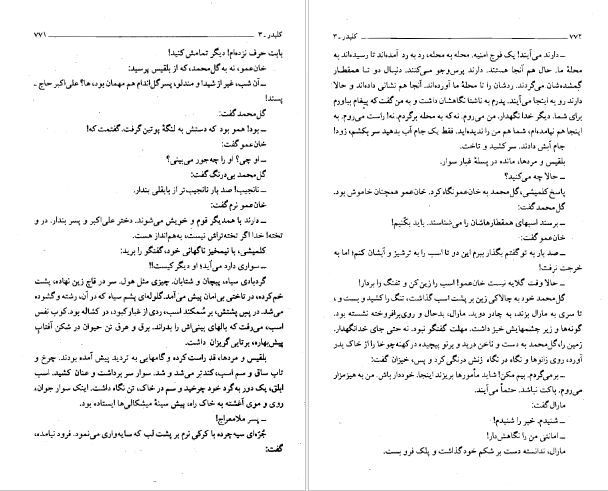 کلیدر ـ ۳ ۷۷۱
بابت حرف نزده‌ام! دیگر تمامش کنید!
خان‌عمو، نه به گل‌محمد، که از بلقیس پرسید:
ــ آن شب، غیر از شیدا و مندلو، پسر گل‌اندام هم مهمان بود، ها؟ علی‌اکبر حاج ـ
پسند!
گل‌محمد گفت:
ــ بود! همو بود که دستش به لنگهٔ پوتین گرفت. گفتمت که!
خان‌عمو گفت:
ــ او چی؟ او را چه‌جور می‌بینی؟
گل‌محمد بی‌درنگ گفت:
ــ نانجیب! صد بار نانجیب‌تر از بابقلی بندار.
خان‌عمو نرم گفت:
ــ دارند با همدیگر قوم و خویش می‌شوند. دختر علی‌اکبر و پسر بندار. در و
تخته! خدا اگر تخته‌تراش نیست، به‌هم‌انداز هست.
کلمیشی، با نیمخیز ناگهانی خود، گفتگو را برید:
ــ سواری دارد می‌آید! او دیگر کیست؟!
گردبادی سیاه، پیچان و شتابان. چیزی مثل هول. سر در قاچ زین نهاده، پشت
خم‌کرده، در تاختی بی‌امان پیش می‌آمد. گلوله‌ای پشم سیاه که در آن، رشته و گشوده
می‌شد. در پس پشتش، بر سُمکند اسب، ردی از غبار کبود، در کشاله بود. کوب نفس
اسب، می‌رفت که بالهای بینی‌اش را بدراند. برق و عرق تن حیوان در شکن آفتاب
پیش‌بهاره، برتابی گریزان داشت.
بلقیس و مردها، قد راست کرده و گامهایی به تردید پیش آمده بودند. چرخ و
تاب ساق و سم اسب، کندتر می‌شد و شد. سوار سر برداشت و عنان کشید. اسب
ابلق، یک دور به‌گرد خود چرخید و سم در خاک، تن نگاه داشت. اینک سوار جوان،
روی و موی آغشته به خاک راه، پیش سینهٔ میشکالی‌ها ایستاده بود.
ــ پسر ملامعراج!
جُرّه‌ای سیه‌چرده با کرکی نرم بر پشت لب که سایه‌واری می‌نمود. فرود نیامده،
گفت:
۷۷۲ کلیدر ـ ۳
ــ دارند می‌آیند! یک فوج امنیه. محله به محله، رد به رد آمده‌اند تا رسیده‌اند به
محلهٔ ما. حال هم آنجا هستند. دارند پرس‌وجو می‌کنند. دنبال دو تا همقطار
گمشده‌شان می‌گردند. ردشان را تا محلهٔ ما آورده‌اند. آنجا هم نشانی داده‌اند و حالا
دارند رو به اینجا می‌آیند. پدرم به ناشتا نگاهشان داشت و به من گفت که پیغام بیاورم
برای شما. دیگر خدا نگهدار. من می‌روم. نه که به محله برگردم. نه! راست می‌روم. به
اینجا هم نیامده‌ام. شما هم من را ندیده‌اید. فقط یک جام آب بدهید سر بکشم، زود!
جام آبش دادند. سر کشید و تاخت.
بلقیس و مردها، مانده در پسلهٔ غبار سوار.
ــ حالا چه می‌کنید؟
پاسخ کلمیشی، گل‌محمد به خان‌عمو نگاه کرد. خان‌عمو همچنان خاموش بود.
گل‌محمد گفت:
ــ برسند اسبهای همقطارهاشان را می‌شناسند. باید بکَنیم!
خان‌عمو گفت:
ــ صد بار به تو گفتم بگذار ببرم این دو تا اسب را به ترشیز و آبشان کنم؛ اما به
خرجت نرفت!
ــ حالا وقت گلایه نیست خان‌عمو! اسب را زین کن و تفنگ را بردار!
گل‌محمد خود به چالاکی زین بر پشت اسب گذاشت، تنگ را کشید و بست و،
تا سری به مارال بزند، به چادر دوید. مارال، بدحال و روی‌برافروخته نشسته بود.
گونه‌ها و زیر چشمهایش خیز داشت. مهلت گفتگو نبود. نه حتی جای خدانگهدار.
زمین را، گل‌محمد به دست و ناخن درید و پرتو پیچیده در کهنه‌چوخا را از خاک بدر
آورد، روی زانوها و نگاه در نگاه زنش درنگی کرد و پس، خیزان گفت:
ــ برمی‌گردم. بیم مکن! شاید مأمورها بریزند اینجا. خوددار باش. من به هیزم‌زار
می‌روم. باکت نباشد. حتماً می‌آیند.
مارال گفت:
ــ شنیدم. خبر را شنیدم!
ــ امانتی من را نگاهش‌دار!
مارال، ندانسته دست بر شکم خود گذاشت و پلک فرو بست.